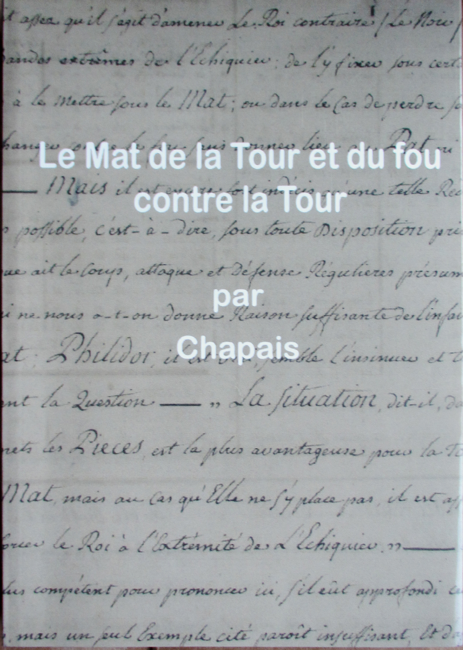 assez qu'il s'agit d'amener Le Roi contraire (Le Noir)
bandes extrêmes de l'Echiquier; de l'y fixer sous
à le mettre sous le Mat; ou dans le cas de perdre
Le Mat de la Tour et du fou
Mais il
contre la Tour
possible, c'est-à-dire, sous toute Disposition
ait le coup, attaque et Défense Régulieres
par
ne nous a-t-on donné Raison suffisante de
Chapais
Philidor, semble l'insinuer et
la Question — „ La situation, dit-il,
les Pieces, est la plus avantageuse pour la
Mat, mais au cas qu'Elle ne s'y place pas, il est
le Roi à l'Extrémité de L'Echiquier. „ —
plus compétent pour prononcer ici, s'il eût approfondi
mais un seul Exemple cité paroît insuffisant, Et